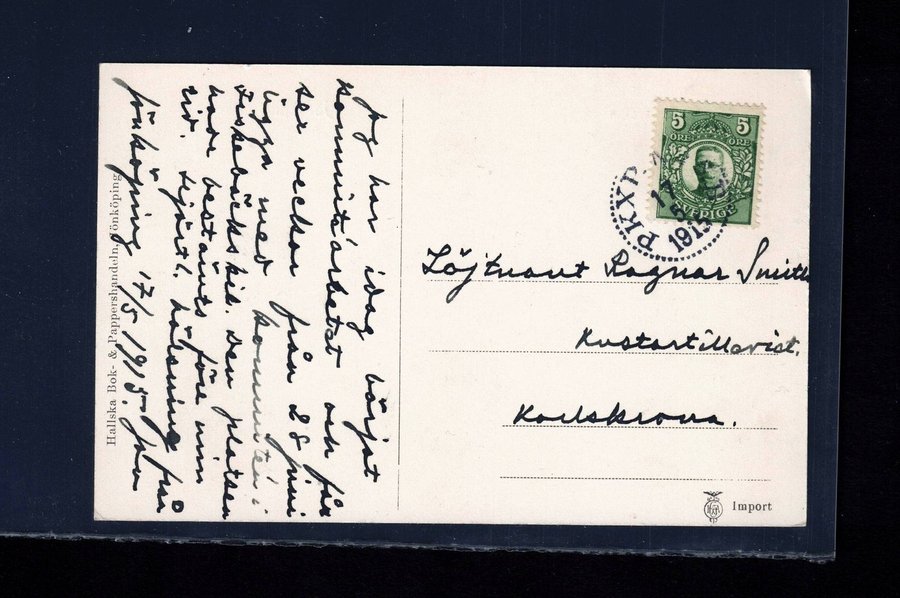 Jag har idag börjat
kommitéarbetet och får
sex veckor från 28 juni
ligga med kommitén i
Fiskebäckskil. Den platsen
hade bestämts före min
tid. Hälsning från
Jönköping 17/5 1915. John
Hallska Bok- & Pappershandeln, Jönköping
5 5
ÖRE ÖRE
SVERIGE
PKXP
17
5
1915
Löjtnant Ragnar Smith
Kustartilleriet.
Karlskrona.
Import